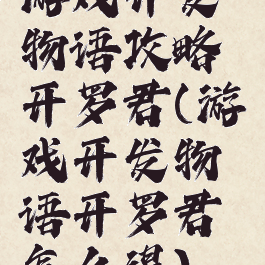 游戏开发
物语攻略
开罗君(游
戏开发物
语开罗君
怎么得)